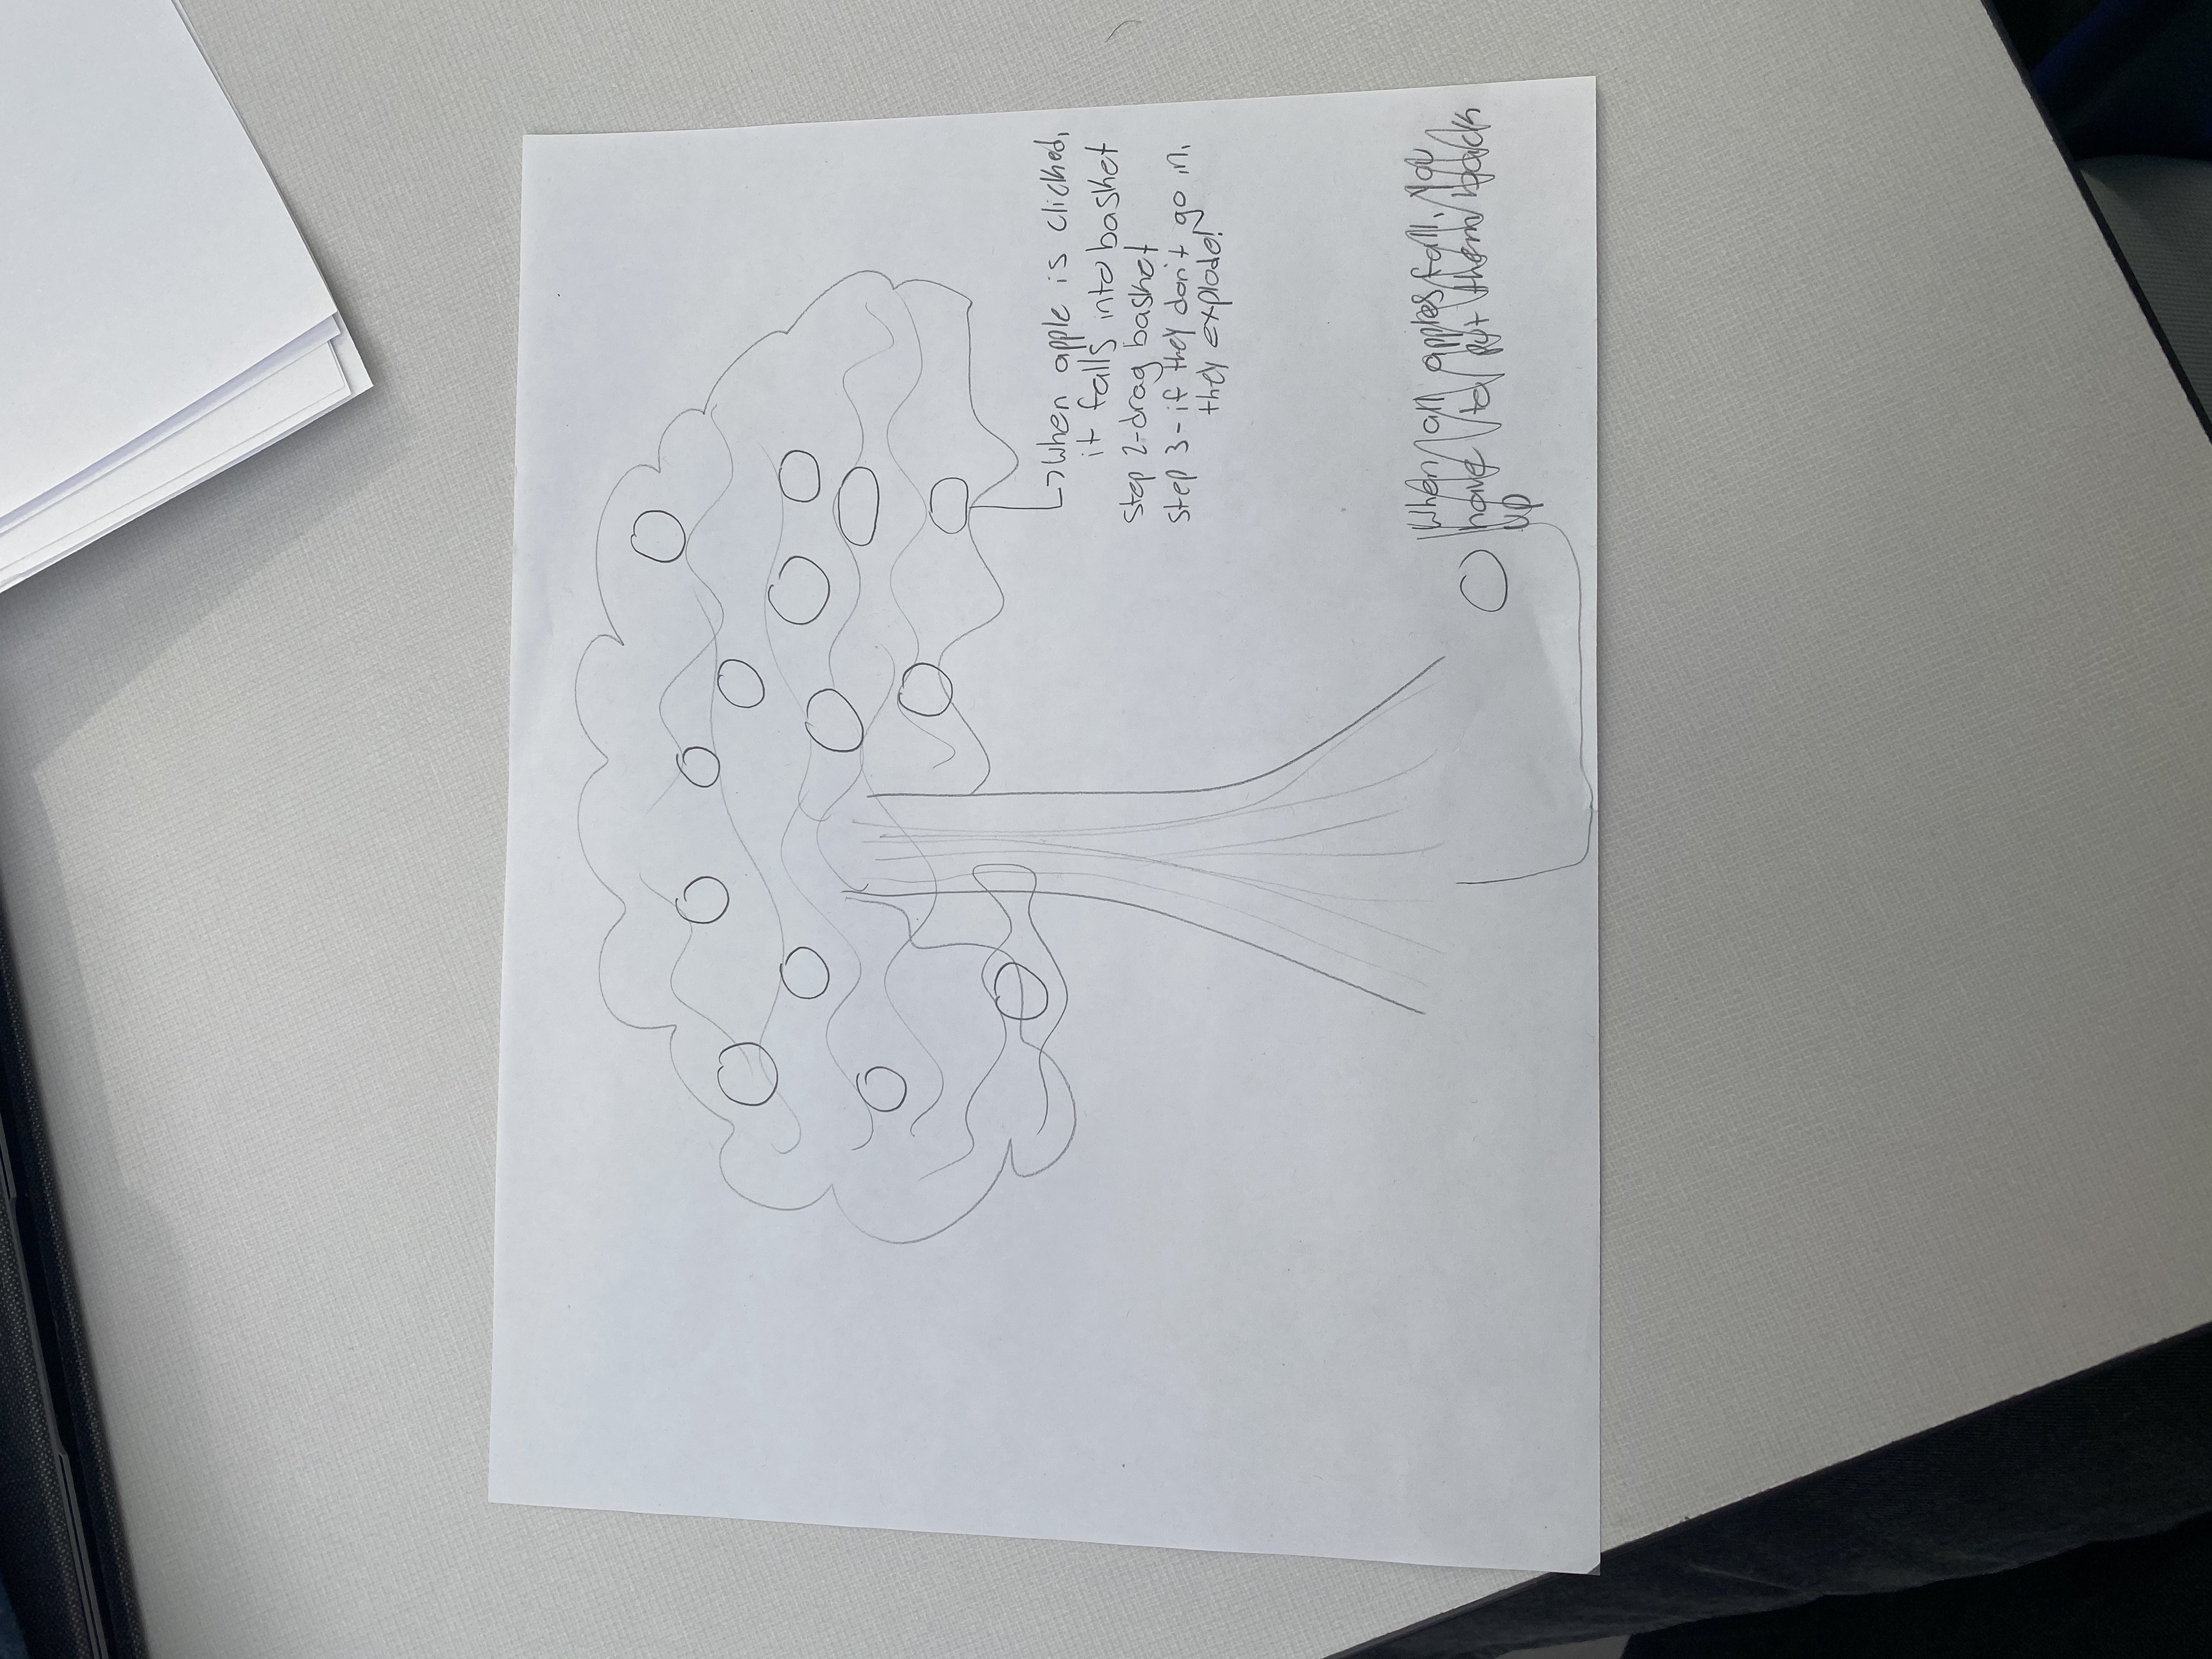 When apple is clicked,
it falls into basket
step 2-drag basket
step 3-if they don't go in,
they explode!
When all apples fall, you
have to put them back
up